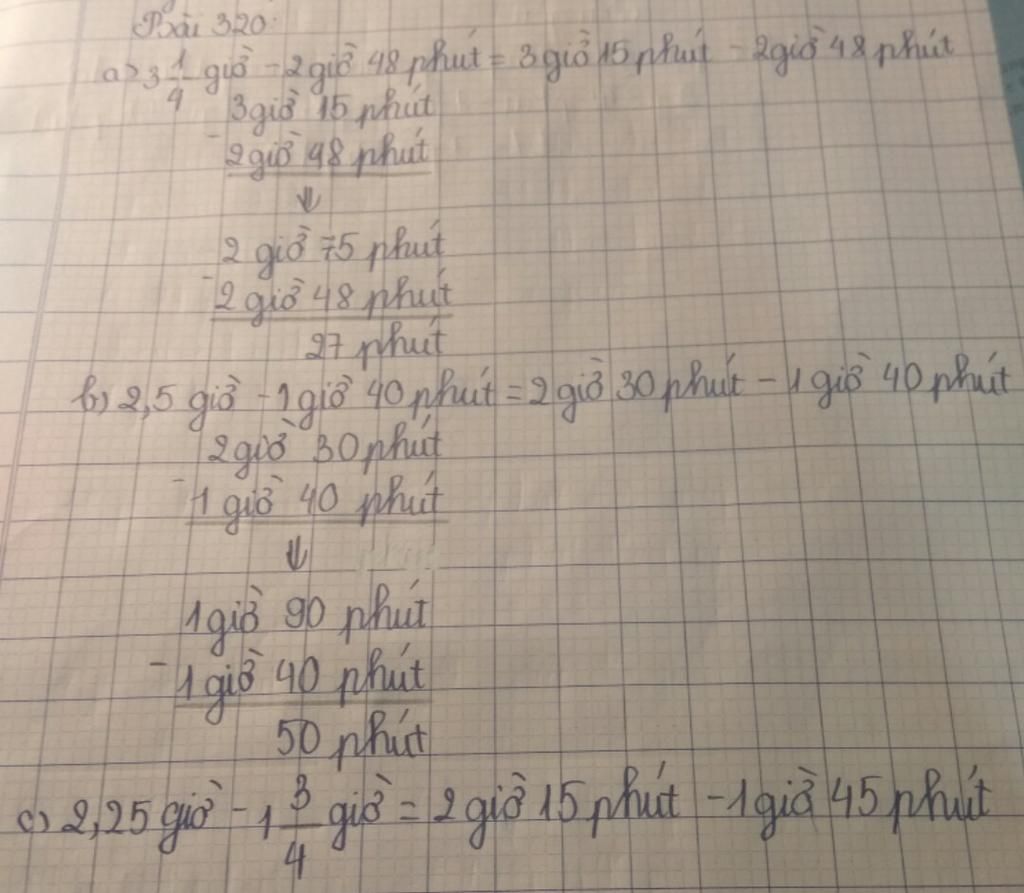 Bài 320:
a> 3 1/4 giờ - 2 giờ 48 phút = 3 giờ 15 phút - 2 giờ 48 phút
3 giờ 15 phút
- 2 giờ 48 phút
↓
2 giờ 75 phút
- 2 giờ 48 phút
27 phút
b) 2,5 giờ - 1 giờ 40 phút = 2 giờ 30 phút - 1 giờ 40 phút
2 giờ 30 phút
- 1 giờ 40 phút
↓
1 giờ 90 phút
- 1 giờ 40 phút
50 phút
c) 2,25 giờ - 1 3/4 giờ = 2 giờ 15 phút - 1 giờ 45 phút